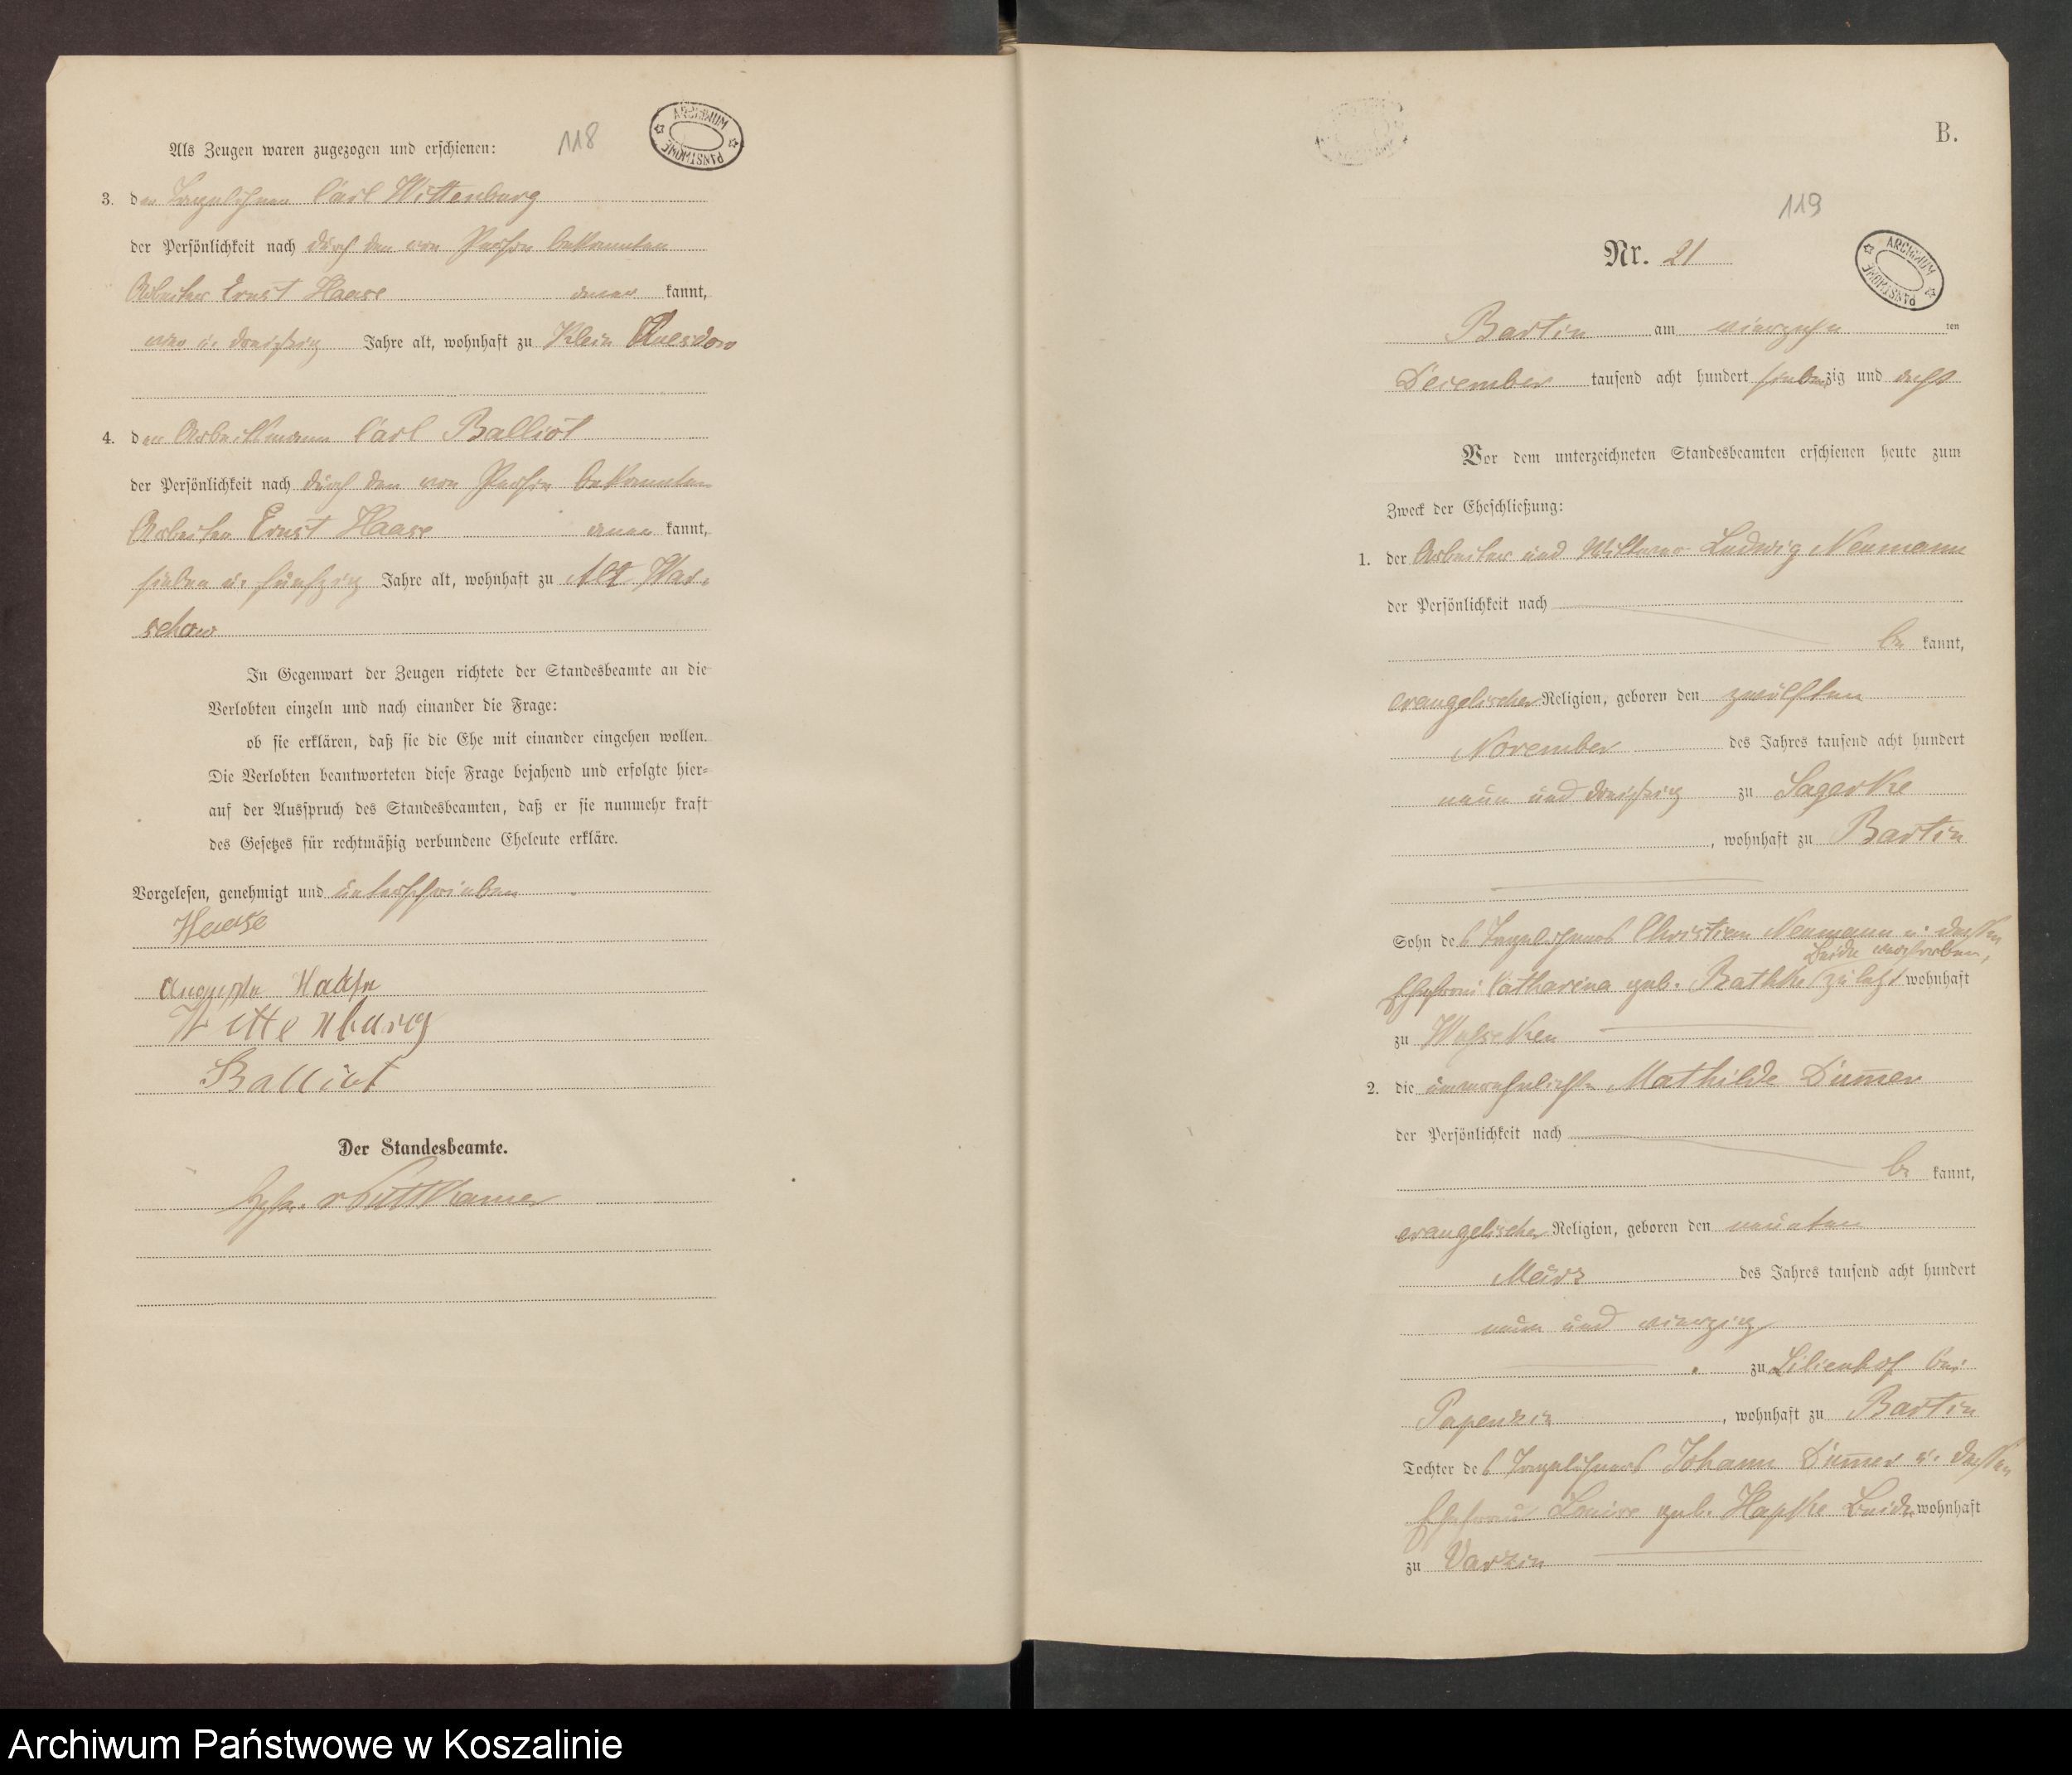 118
ARCHIWUM PAŃSTWOWE
Als Zeugen waren zugezogen und erschienen:
3. der Tagelöhner Carl Wittenburg
der Persönlichkeit nach durch den von Person bekannten
Arbeiter Ernst Haase aner kannt,
vier u. dreißig Jahre alt, wohnhaft zu Klein
4. der Arbeitsmann Carl Balliot
der Persönlichkeit nach durch den von Person bekannten
Arbeiter Ernst Haase aner kannt,
sieben u. fünfzig Jahre alt, wohnhaft zu Alt War-
schow
In Gegenwart der Zeugen richtete der Standesbeamte an die
Verlobten einzeln und nach einander die Frage:
ob sie erklären, daß sie die Ehe mit einander eingehen wollen.
Die Verlobten beantworteten diese Frage bejahend und erfolgte hier-
auf der Ausspruch des Standesbeamten, daß er sie nunmehr kraft
des Gesetzes für rechtmäßig verbundene Eheleute erkläre.
Vorgelesen, genehmigt und unterschrieben
Haase
Auguste
Wittenburg
Balliot
Der Standesbeamte.
v Puttkamer
B.
119
Nr. 21
ARCHIWUM PAŃSTWOWE
Bartin am vierzehn ten
December tausend acht hundert siebenzig und acht
Vor dem unterzeichneten Standesbeamten erschienen heute zum
Zweck der Eheschließung:
1. der Arbeiter und Wittwer Ludwig Neumann
der Persönlichkeit nach
be kannt,
evangelischer Religion, geboren den zwölften
November des Jahres tausend acht hundert
neun und dreißig zu Sagerke
, wohnhaft zu Bartin
Sohn des Tagelöhners Christian Neumann u. dessen
Beide verstorben,
Ehefrau Catharina geb. Rathke zuletzt wohnhaft
zu
2. die unverehelichte Mathilde Dum̅er
der Persönlichkeit nach
be kannt,
evangelischer Religion, geboren den neunten
März des Jahres tausend acht hundert
neun und vierzig
zu Lilienhof bei
Papenzin, wohnhaft zu Bartin
Tochter des Tagelöhners Johann Dum̅er u. dessen
Ehefrau Louise geb. Hapke Beide wohnhaft
zu Varzin
Archiwum Państwowe w Koszalinie